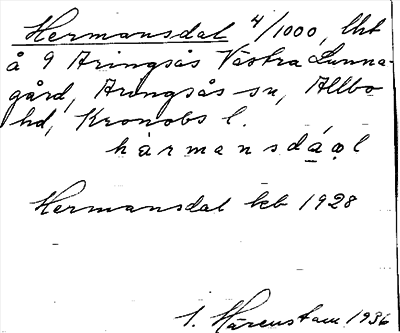 Hermansdal 4/1000, lht
å 9 Aringsås Västra Lunna-
gård, Aringsås sn, Allbo
hd, Kronobs l.
hármansdáo̩l
Hermansdal kb 1928
I. Härenstam 1936